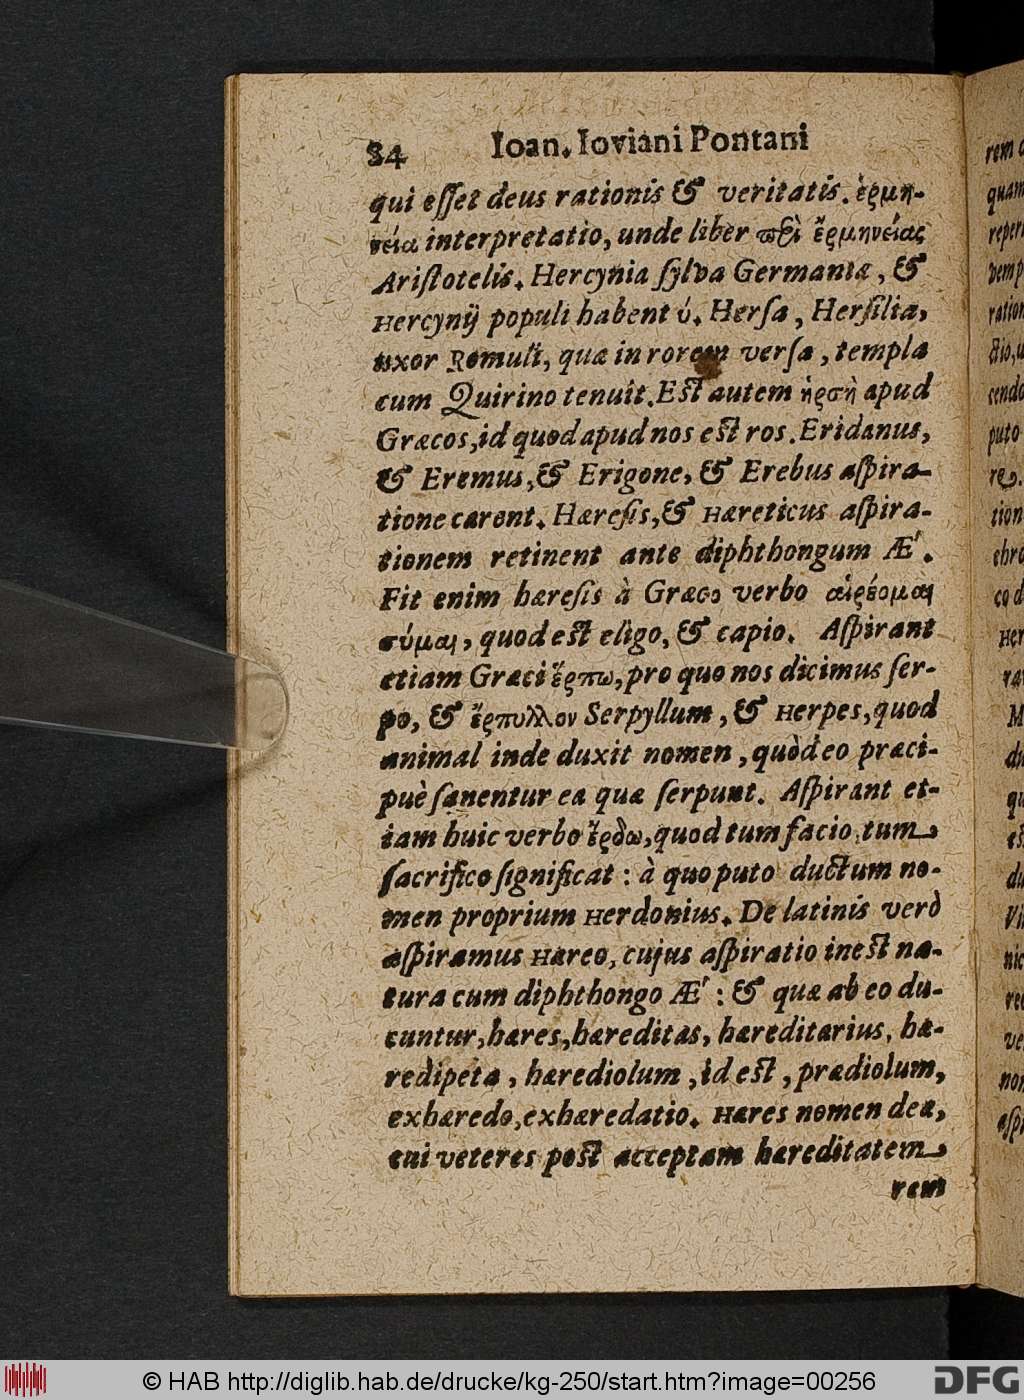 84 Ioan. Ioviani Pontani
qui eſſet deus rationis & veritatis. ἑρμη-
νεία interpretatio, unde liber περὶ ἑρμηνείας
Ariſtotelis. Hercynia ſylva Germaniæ, &
Hercynij populi habent ὑ. Herſa, Herſilia,
uxor Romuli, quæ in rorem verſa, templa
cum Quirino tenuit. Eſt autem ἡρσὴ apud
Græcos, id quod apud nos eſt ros. Eridanus,
& Eremus, & Erigone, & Erebus aſpira-
tione carent. Hæreſis, & Hæreticus aſpira-
tionem retinent ante diphthongum Æ.
Fit enim hæreſis à Græco verbo αἱρέομαι
οῦμαι, quod eſt eligo, & capio. Aſpirant
etiam Græci ἕρπω, pro quo nos dicimus ſer-
po, & ἕρπυλλον Serpyllum, & Herpes, quod
animal inde duxit nomen, quòd eo præci-
puè ſanentur ea quæ ſerpunt. Aſpirant et-
iam huic verbo ἔρδω, quod tum facio, tum
ſacrifico ſignificat: à quo puto ductum no-
men proprium Herdonius. De latinis verò
aſpiramus Hæreo, cujus aſpiratio ineſt na-
tura cum diphthongo Æ: & quæ ab eo du-
cuntur, hæres, hæreditas, hæreditarius, hæ-
redipeta, hærediolum, id eſt, prædiolum,
exhæredo, exhæredatio. Hæres nomen deæ,
cui veteres poſt acceptam hæreditatem
rem
© HAB http://diglib.hab.de/drucke/kg-250/start.htm?image=00256
DFG